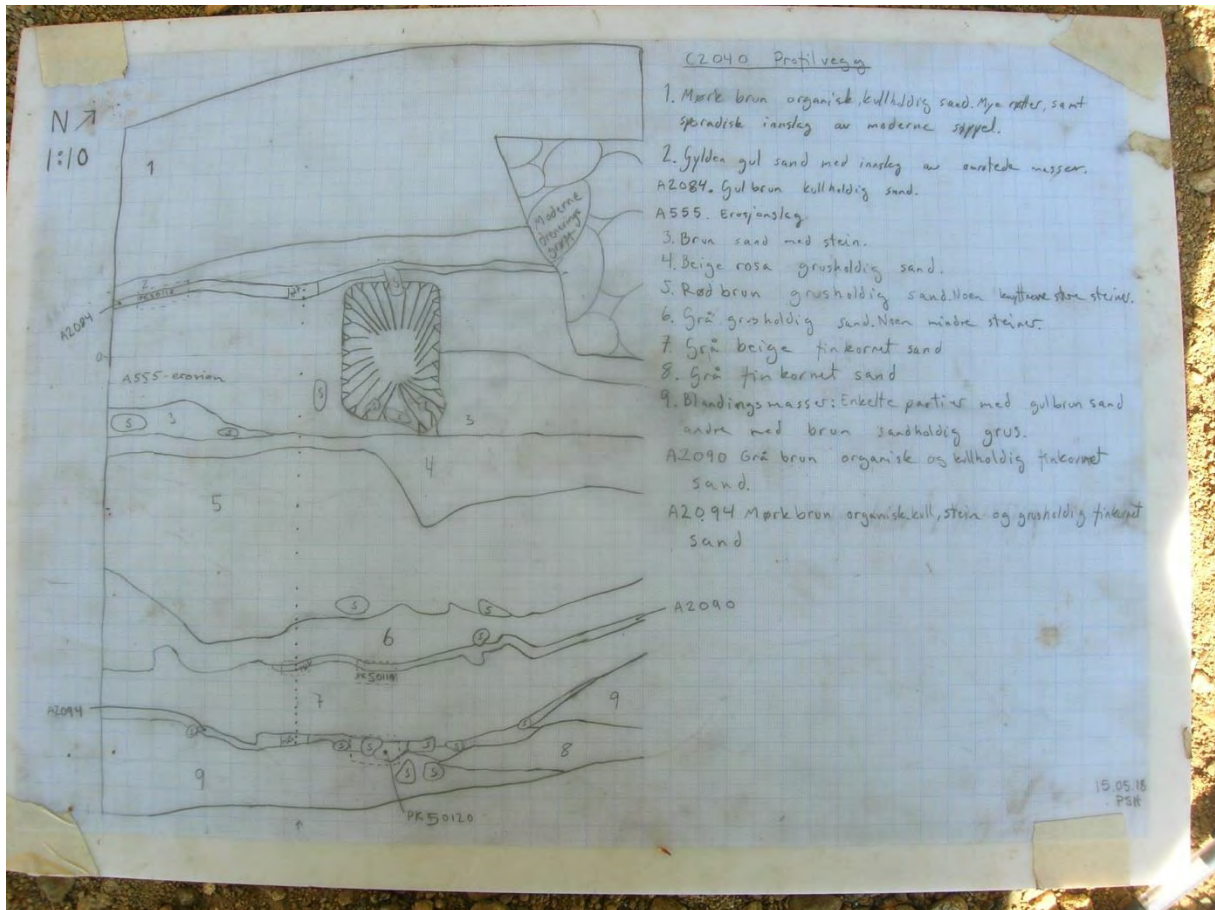 C2040 Profilvegg
N
1:10
1. Mørk brun organisk, kullholdig sand. Mye røtter, samt
sporadisk innslag av moderne søppel.
2. Gylden gul sand med innslag av omrotede masser.
A2084. Gulbrun kullholdig sand.
A555. Erosjonslag
3. Brun sand med stein.
4. Beige rosa grusholdig sand.
5. Rødbrun grusholdig sand. Noen knyttneve store steiner.
6. Grå grusholdig sand. Noen mindre steiner.
7. Grå beige finkornet sand
8. Grå finkornet sand
9. Blandingsmasser: Enkelte partier med gulbrun sand
andre med brun sandholdig grus.
A2090 Grå brun organisk og kullholdig finkornet
sand.
A2094 Mørkbrun organisk, kull, stein og grusholdig finkornet
sand
1
Moderne
drenerings
grøft
2
A2084
0
A555-erosion
S
3
S
S
S
3
4
5
S
S
A2090
6
S
7
9
A2094
S
S
S
S
S
S
8
S
S
9
PK50120
15.05.18
PSH